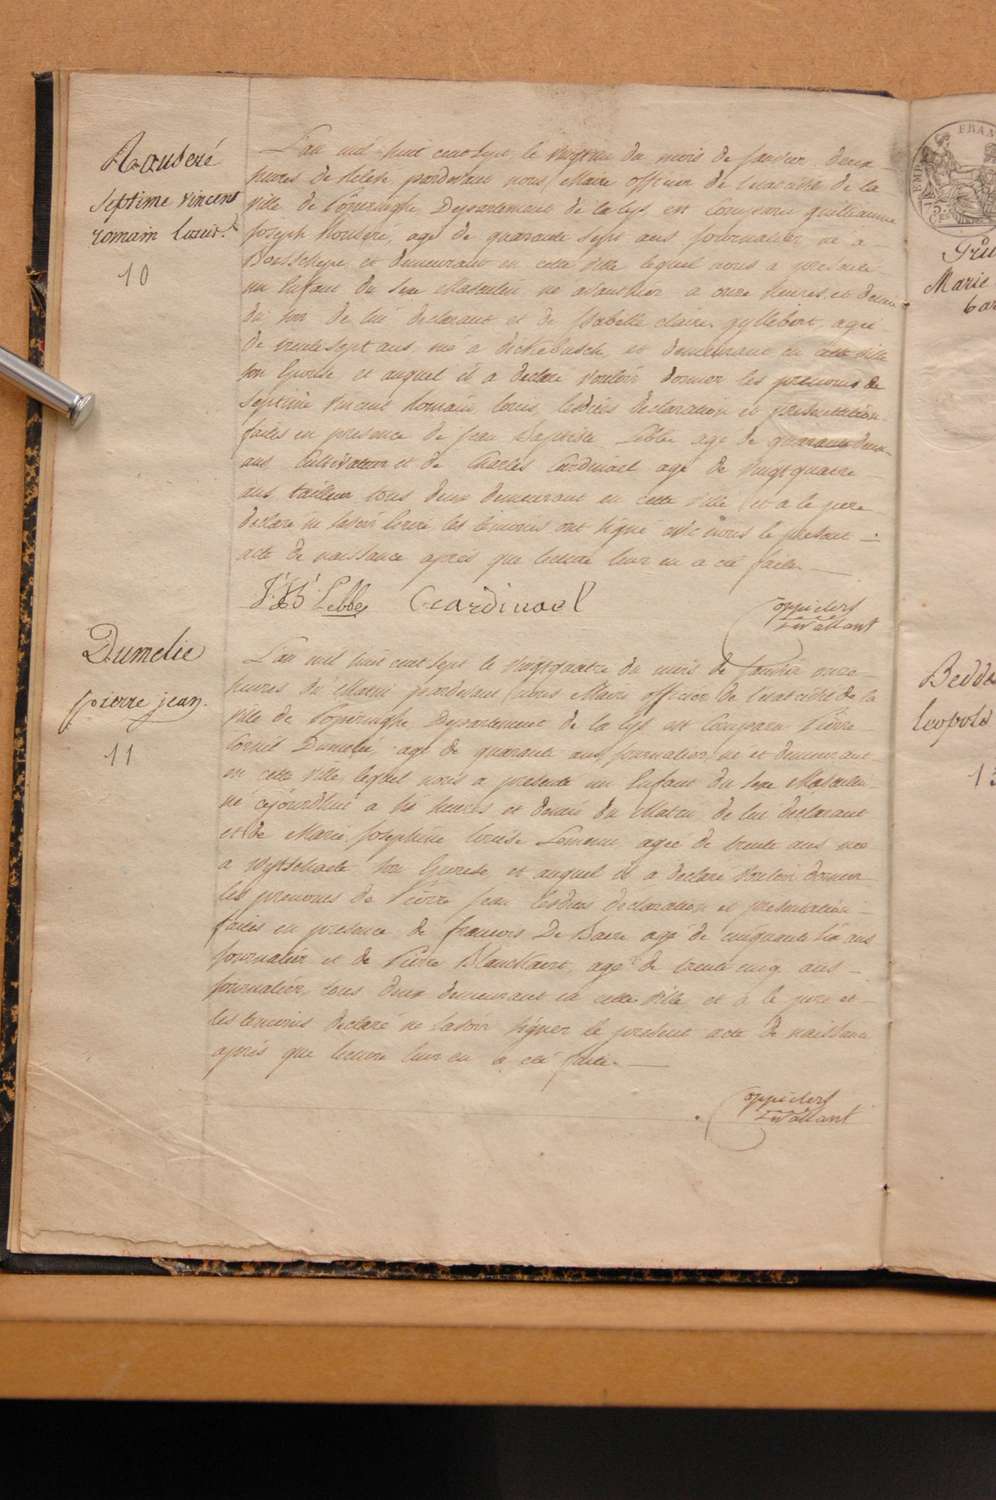 Rouseré
Septime Vincent
romain louis
10
L'an mil huit cent sept le du mois de Janvier deux
heures de relevé pardevant nous Maire officier de l'etat civil de la
ville de Poperinghe Departement de la Lys est comparu guilliaume
Joseph Rouseré, agé de quarante sept ans journalier né à
Boesschepe et demeurant en cette ville lequel nous a presenté
un Enfant du sexe Masculin né avanthier a onze heures et demie
du soir de lui declarant et de Isabelle claire gyllebert, agée
de trente sept ans, née a dickebusch, et demeurant en cette ville
son Epouse et auquel il a declaré vouloir donner les prenoms de
Septime Vincent Romain Louis, lesdites declaration et presentation
faites en presence de Jean Baptiste Lebbe agé de quarante deux
ans Cultivateur et de Charles Cardinael agé de vingt quatre
ans tailleur tous deux demeurant en cette ville et a le pere
declaré ne savoir Ecrire les temoins ont signé avec nous le present
acte de naissance après que lecture leur en a été faite
J B Lebbe Ccardinael
Coppieters
Wallant
Dumelie
pierre jean
11
L'an mil huit cent sept le vingt quatre du mois de Janvier onze
heures du Matin pardevant nous Maire officier de l'etat civil de la
ville de Poperinghe Departement de la Lys est Comparu Pierre
Cornil Dumelie, agé de quarante ans journalier né et demeurant
en cette ville lequel nous a presenté un Enfant du sexe Masculin
né cejourd'hui a six heures et demie du Matin de lui declarant
et de Marie Josephine Terese agée de trente ans née
a Wytschaete son Epouse et auquel il a declaré vouloir donner
les prenoms de Pierre Jean lesdites declaration et presentation
faites en presence de francois De Baere agé de cinquante six ans
journalier et de Pierre Blanckaert, agé de trente cinq ans
journalier, tous deux demeurant en cette ville et à le pere et
les temoins declaré ne savoir signer le present acte de naissance
après que lecture leur en a été faite
Coppieters
Wallant
FRAN
EMP
Marie
Bedde
leopold